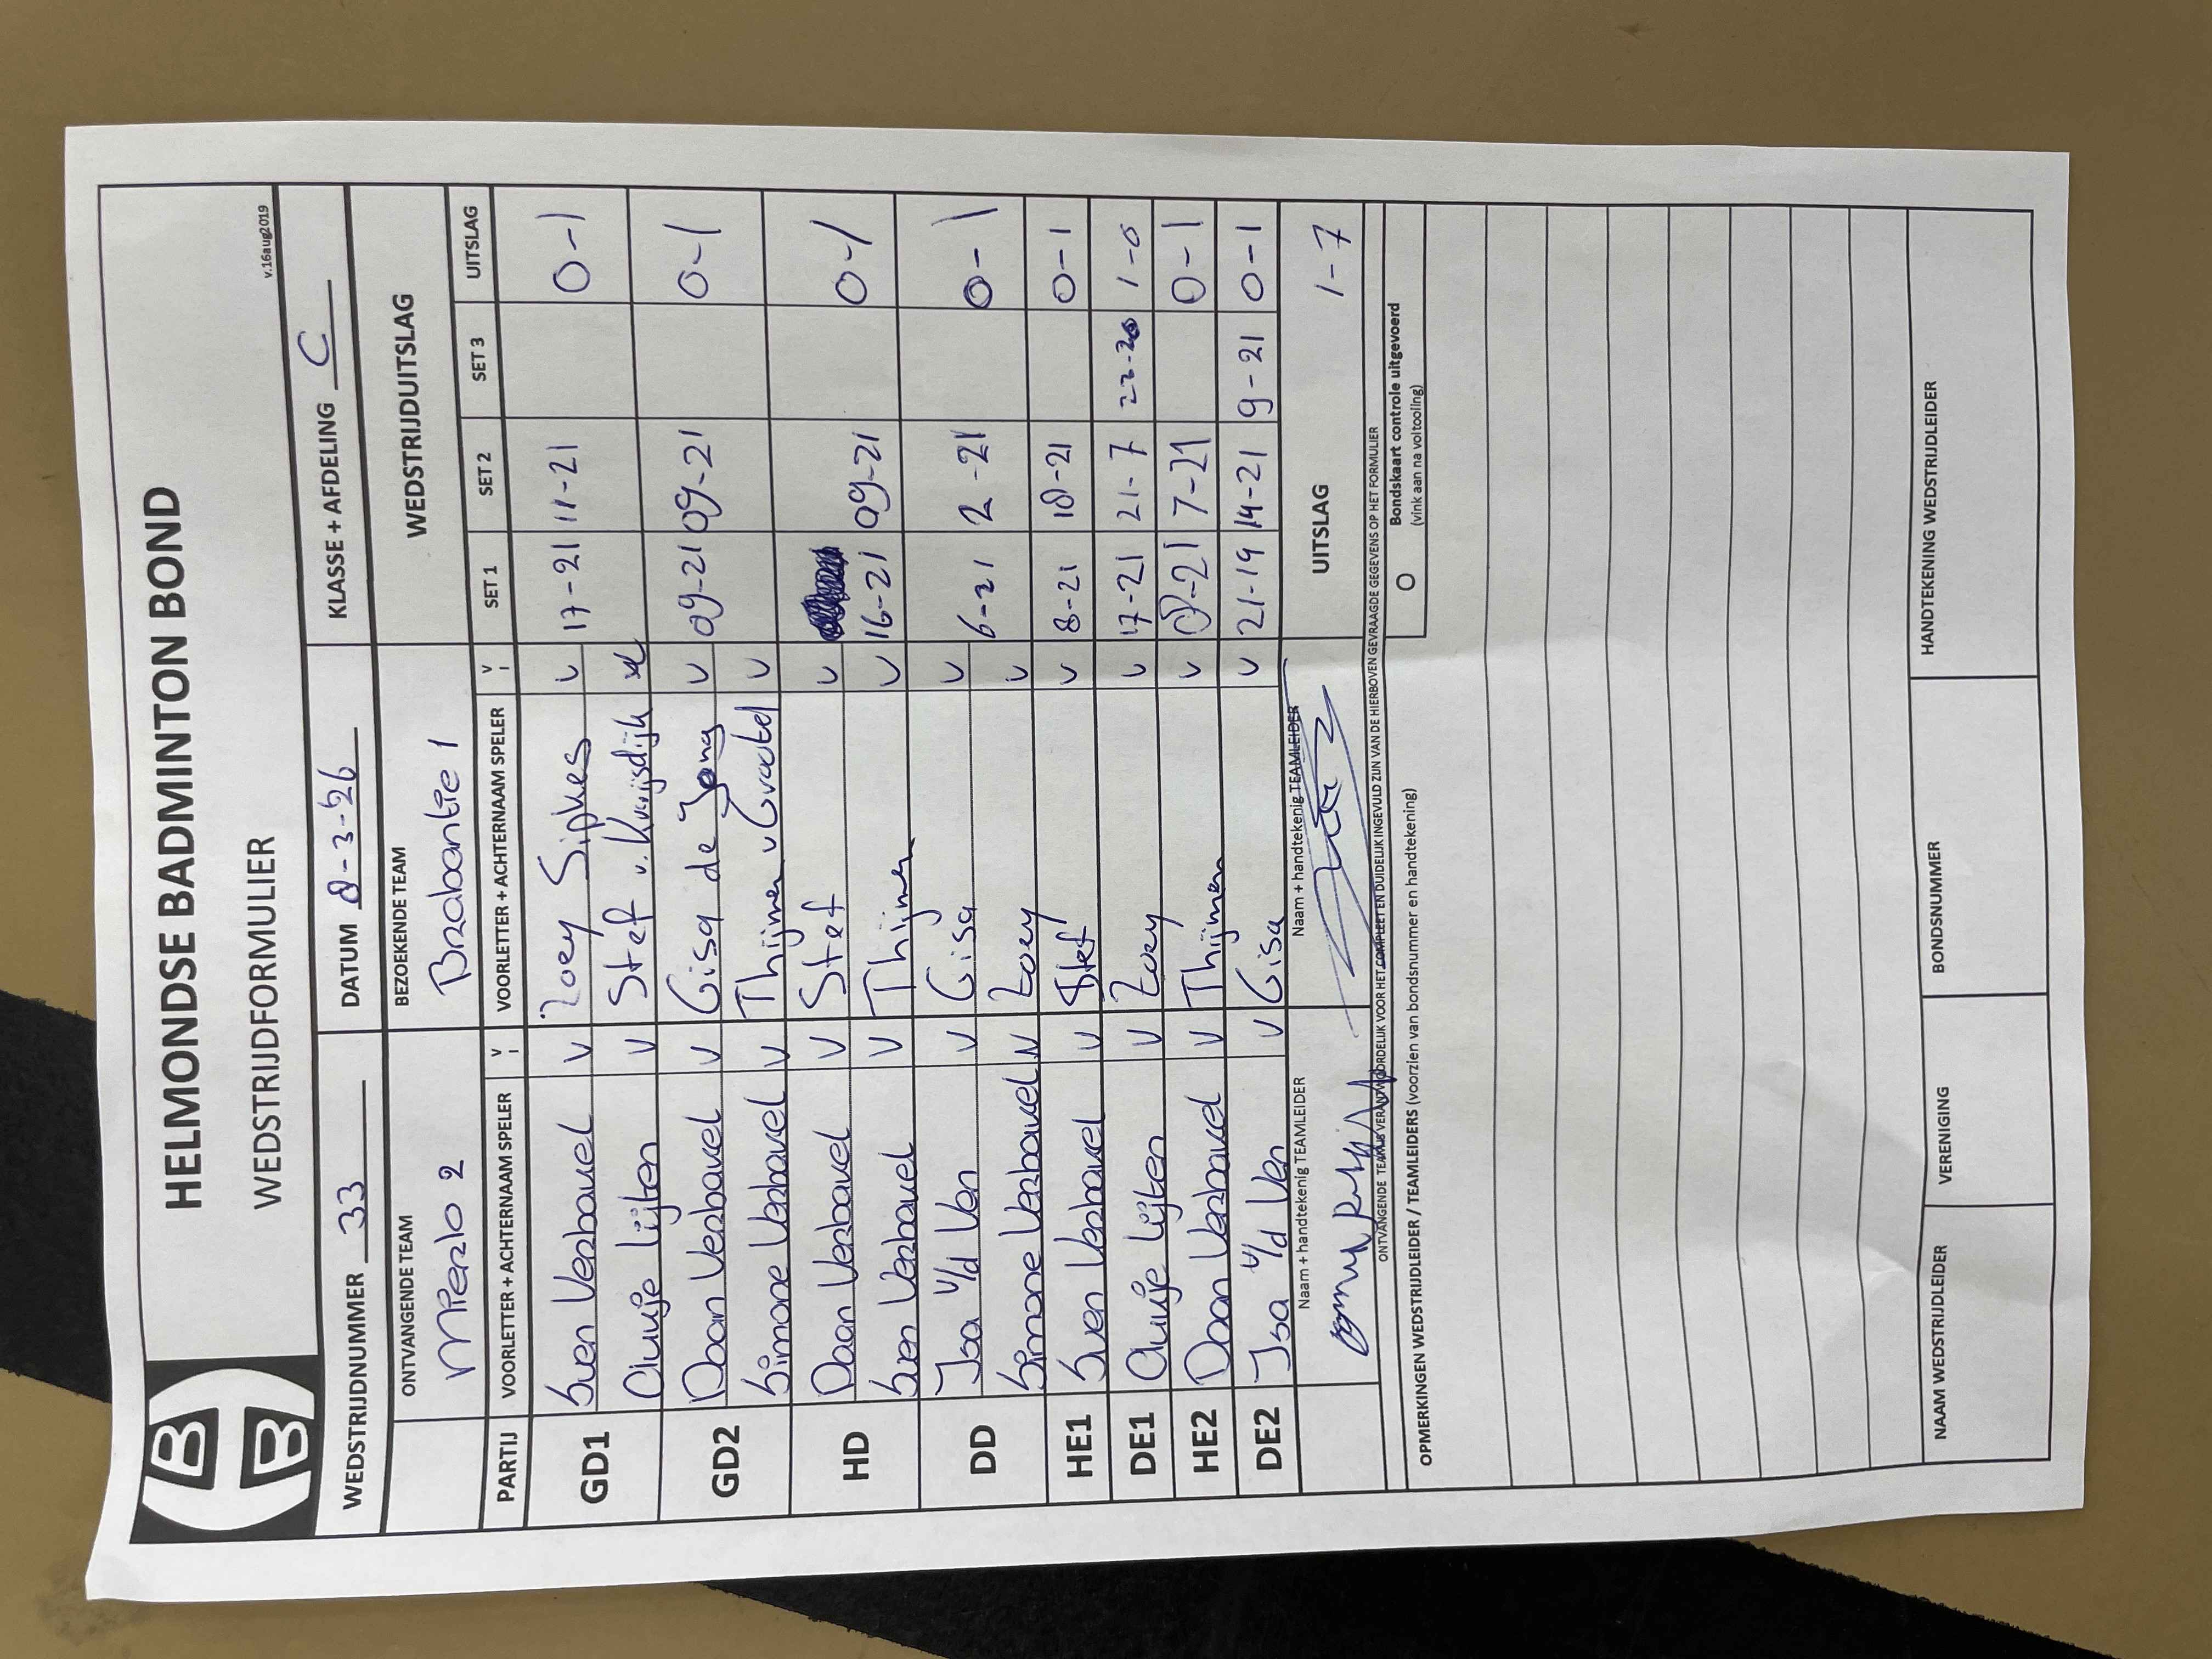 HELMONDSE BADMINTON BOND
WEDSTRIJDFORMULIER
v.16aug2019
WEDSTRIJDNUMMER 33 DATUM 8-3-26 KLASSE + AFDELING C
ONTVANGENDE TEAM BEZOEKENDE TEAM WEDSTRIJDUITSLAG
Mierlo 2 Brabantie 1
PARTIJ VOORLETTER + ACHTERNAAM SPELER V I VOORLETTER + ACHTERNAAM SPELER V I SET 1 SET 2 SET 3 UITSLAG
GD1 Sven Verbavel V Zoey Sipkes V 17-21 11-21 0-1
Aluije Lijten V Stef v. Kruijsdijk
GD2 Daan Verbavel V Gisa de Jong V 09-21 09-21 0-1
Simone Verbavel V Thijmen v Grootel V
HD Daan Verbavel V Stef V
Sven Verbavel V Thijmen V 16-21 09-21 0-1
DD Isa v/d Ven V Gisa V 6-21 2-21 0-1
Simone Verbavel V Zoey V
HE1 Sven Verbavel V Stef V 8-21 18-21 0-1
DE1 Aluije Lijten V Zoey V 17-21 21-7 22-20 1-0
HE2 Daan Verbavel V Thijmen V 8-21 7-21 0-1
DE2 Isa v/d Ven V Gisa V 21-19 14-21 9-21 0-1
Naam + handtekenig TEAMLEIDER Naam + handtekenig TEAMLEIDER UITSLAG 1-7
ONTVANGENDE TEAM IS VERANTWOORDELIJK VOOR HET COMPLEET EN DUIDELIJK INGEVULD ZIJN VAN DE HIERBOVEN GEVRAAGDE GEGEVENS OP HET FORMULIER
OPMERKINGEN WEDSTRIJDLEIDER / TEAMLEIDERS (voorzien van bondsnummer en handtekening)
O Bondskaart controle uitgevoerd
(vink aan na voltooiing)
NAAM WEDSTRIJDLEIDER VERENIGING BONDSNUMMER HANDTEKENING WEDSTRIJDLEIDER